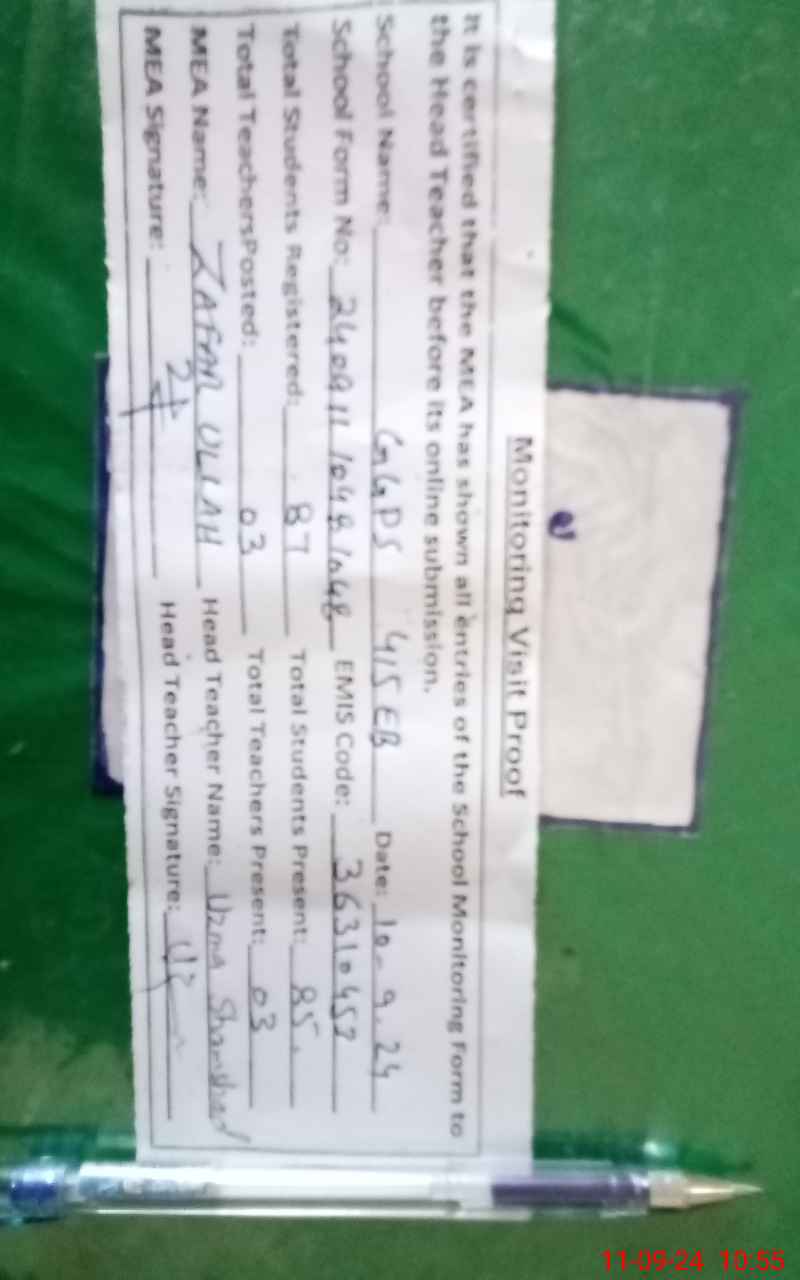 Monitoring Visit Proof
It is certified that the MEA has shown all entries of the School Monitoring Form to
the Head Teacher before its online submission.
School Name: GGPS 415 EB Date: 10-9.24
School Form No: EMIS Code: 36310457
Total Students Registered: 87 Total Students Present: 85
Total TeachersPosted: 03 Total Teachers Present: 03
MEA Name: ZAFAR ULLAH Head Teacher Name: Uzma Shamshad
MEA Signature: Head Teacher Signature:
11-09-24 10:55